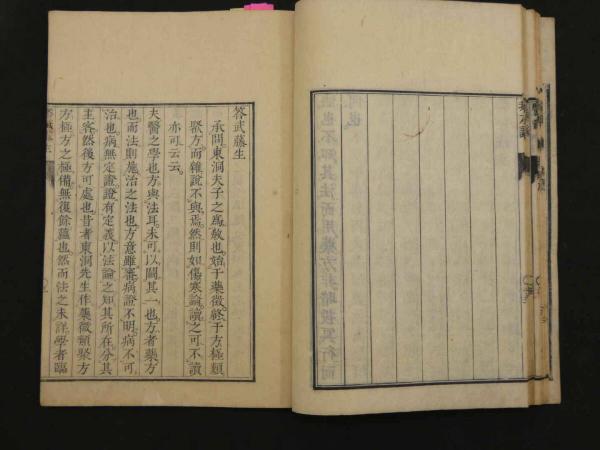 答武藤生
承問東洞夫子之爲敎也始于藥徵終于方極類
聚方而雜說不與焉然則如傷寒論讀之可不讀
亦可云云
夫醫之學也方與法耳未可以闕其一也方者藥方
也而法則施治之法也方意雖審病證不明病不可
治也病無定證證有定義以法論之知其所在分其
主客然後方可處也昔者東洞先生作藥徵類聚方
方極方之極備無復餘蘊也然而法之未詳學者臨